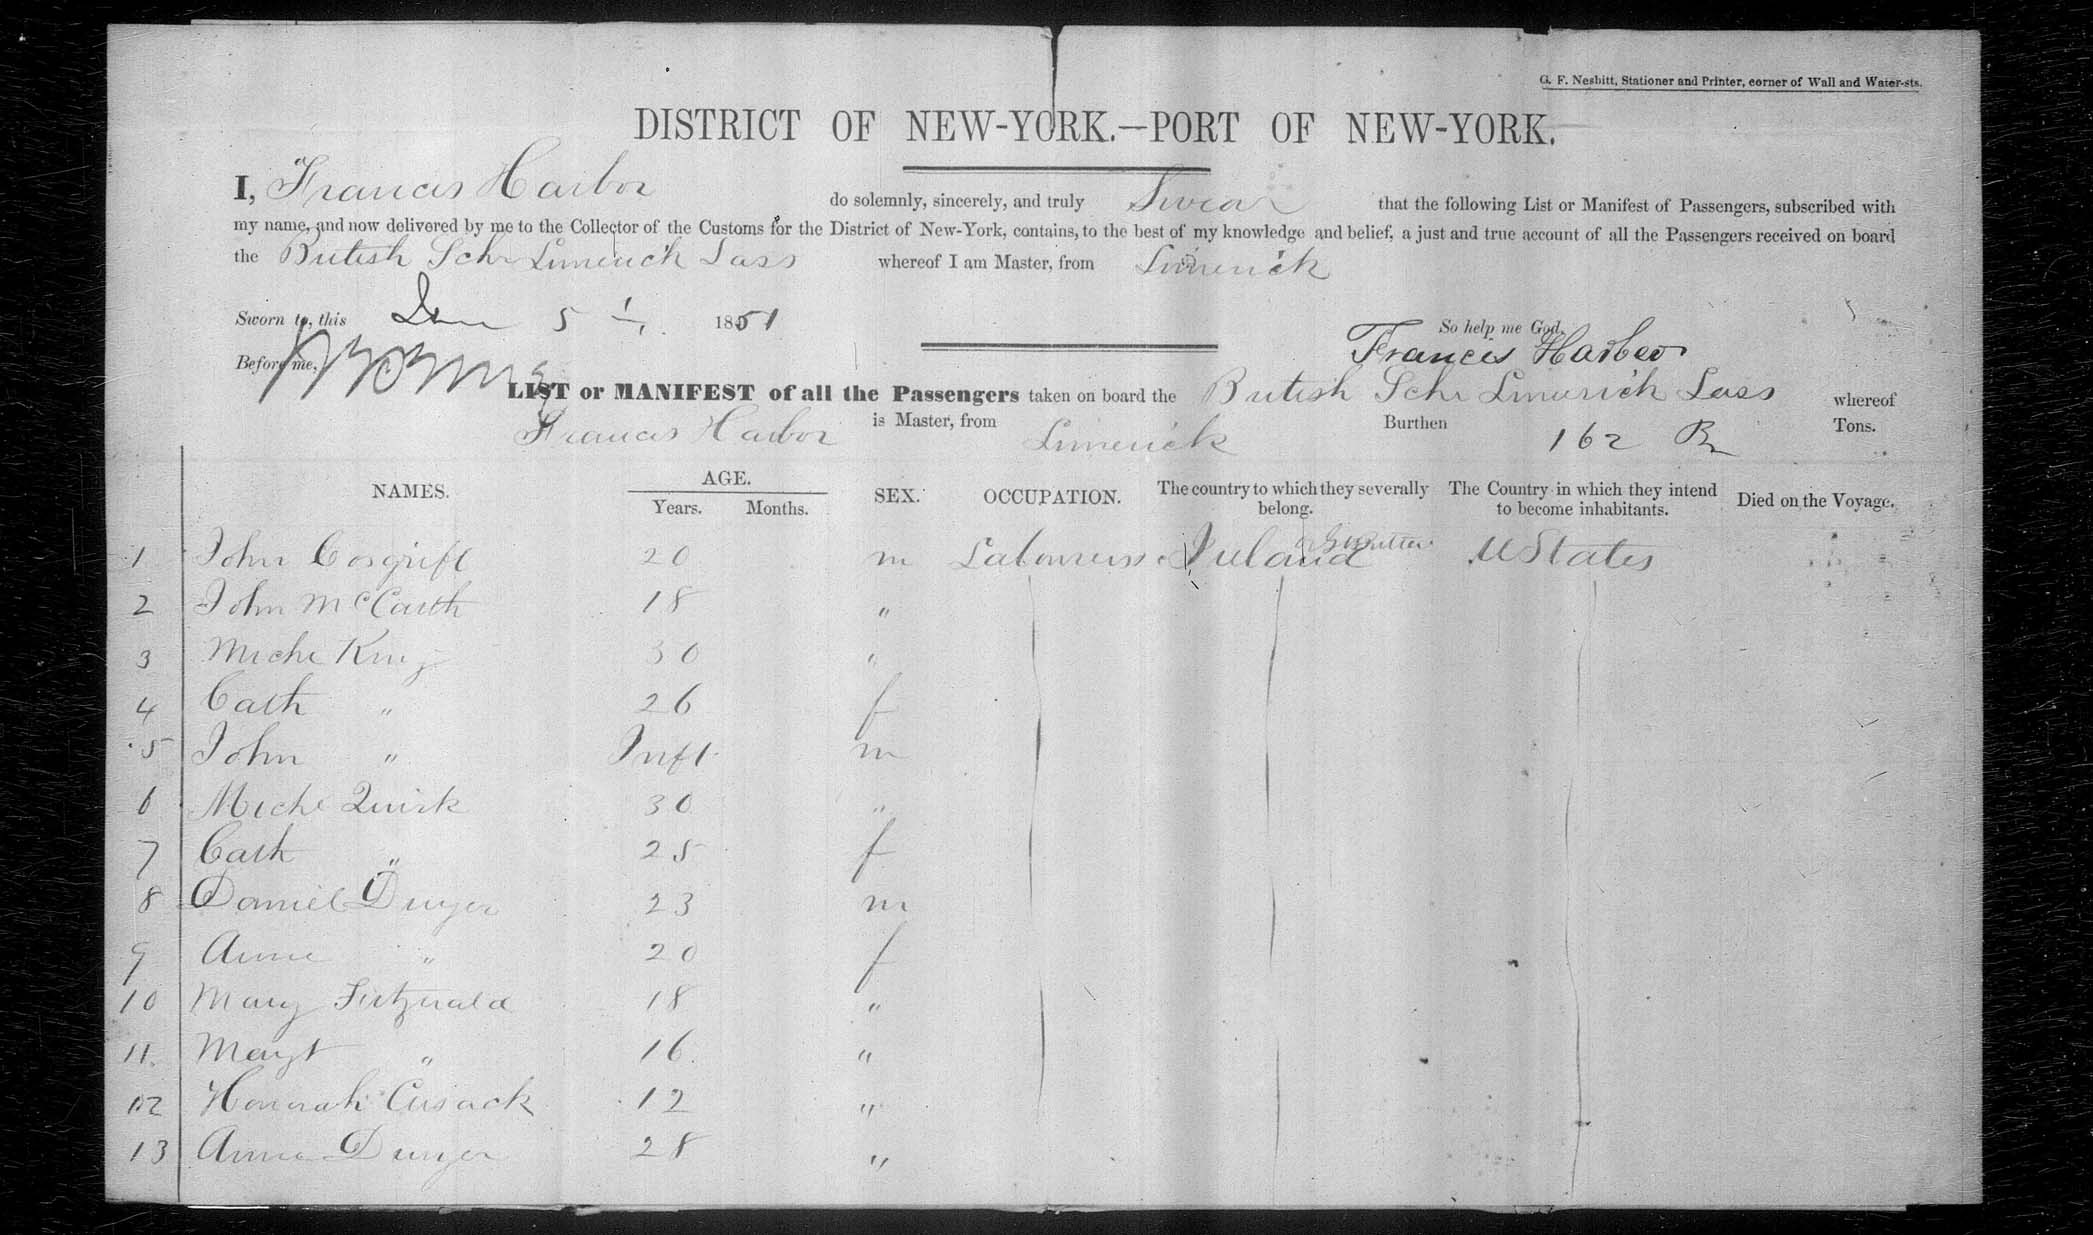 G. F. Nesbitt, Stationer and Printer, corner of Wall and Water-sts.
DISTRICT OF NEW-YORK.—PORT OF NEW-YORK.
I, Francis Harbor do solemnly, sincerely, and truly Swear that the following List or Manifest of Passengers, subscribed with
my name, and now delivered by me to the Collector of the Customs for the District of New-York, contains, to the best of my knowledge and belief, a just and true account of all the Passengers received on board
the British Schr Limerick Lass whereof I am Master, from Limerick
Sworn to, this 5 1851
So help me God.
Before me,
Francis Harbor
LIST or MANIFEST of all the Passengers taken on board the British Schr Limerick Lass whereof
Francis Harbor is Master, from Limerick Burthen 162 Tons.
NAMES. AGE. SEX. OCCUPATION. The country to which they severally belong. The Country in which they intend to become inhabitants. Died on the Voyage.
Years. Months.
1 John Cosgriff 20 m Labourers Ireland U States
2 John McCarth 18 "
3 Miche King 30 "
4 Cath " 26 f
5 John " Inft m
6 Miche Quirk 30 "
7 Cath " 25 f
8 Daniel Dwyer 23 m
9 Anne " 20 f
10 Mary Fitzgerald 18 "
11 Margt " 16 "
12 Honorah Cusack 12 "
13 Anne Dwyer 28 "